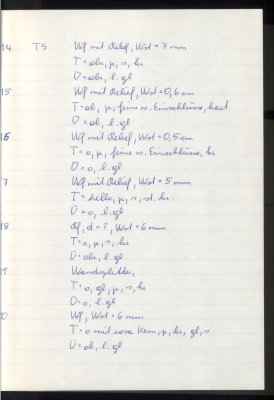 14 TS Wf mit Relief, Wst = 7 mm
T = obr, p, s, hr
O = obr, l. gl
15 Wf mit Relief, Wst = 0,6 cm
T = ob, p, feine w. Einschlüsse, hart
O = ob, l. gl
16 Wf mit Relief, Wst = 0,5 cm
T = o, p, feine w. Einschlüsse, hr
O = o, l. gl
7 Wf mit Relief, Wst = 5 mm
T = hello, p, s, st. hr.
O = o, l. gl
18 Rf, d = ?, Wst = 6 mm
T = o, p, s, hr
O = obr, l. gl
19 Wandsplitter,
T = o, gl, p, s, hr
O = o, l. gl
20 Wf, Wst = 6 mm
T = o mit rosa Kern, p, hr, gl, s
O = ob, l. gl